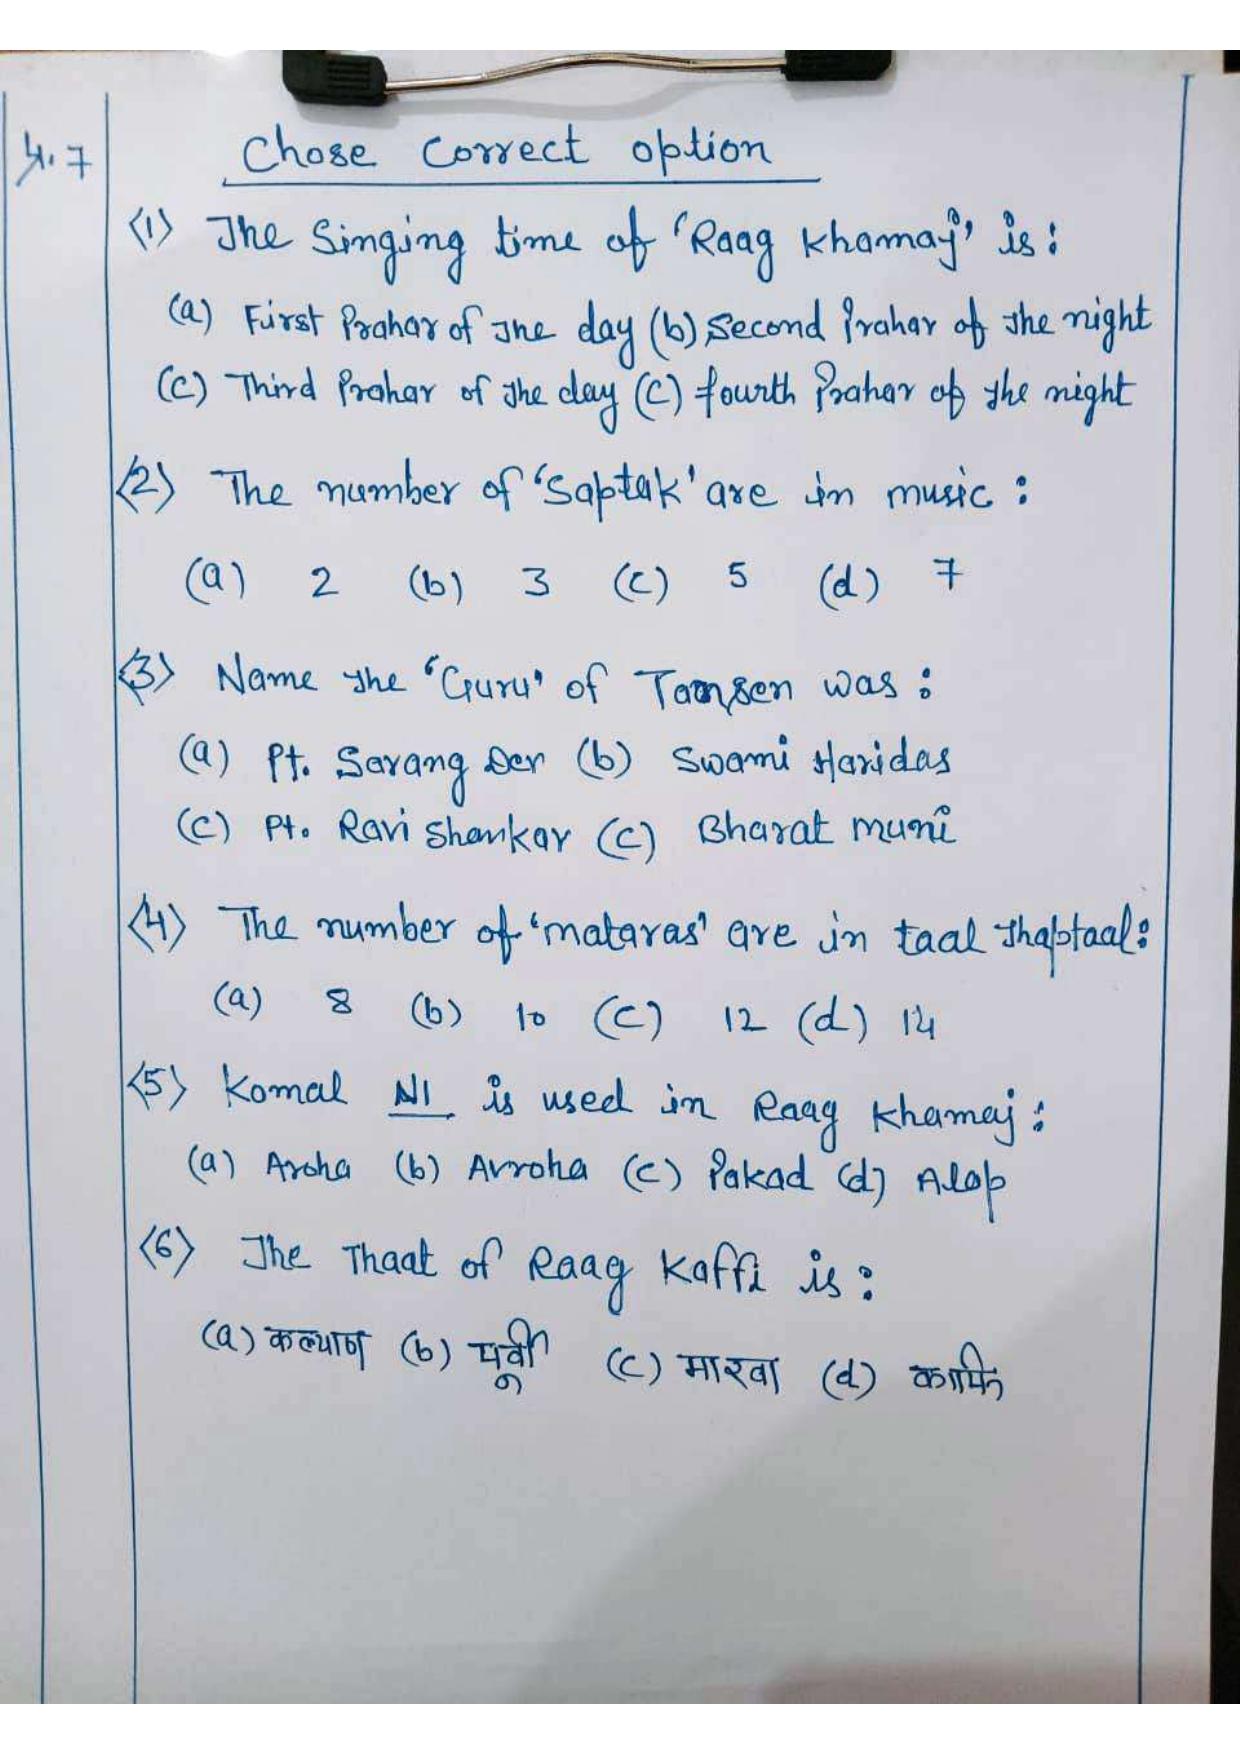 4.7
Chose Correct option
<1> The Singing time of 'Raag Khamaj' is :
(a) First Prahar of The day (b) Second Prahar of the night
(c) Third Prahar of the day (c) fourth Prahar of the night
<2> The number of 'Saptak' are in music :
(a) 2 (b) 3 (c) 5 (d) 7
<3> Name the 'Guru' of Tansen was :
(a) Pt. Sarang Dev (b) Swami Haridas
(c) Pt. Ravi Shankar (c) Bharat muni
<4> The number of 'mataras' are in taal Jhaptaal :
(a) 8 (b) 10 (c) 12 (d) 14
<5> Komal NI is used in Raag Khamaj :
(a) Aroha (b) Avroha (c) Pakad (d) Alap
<6> The Thaat of Raag Kaffi is :
(a) कल्याण (b) पूर्वी (c) मारवा (d) काफि